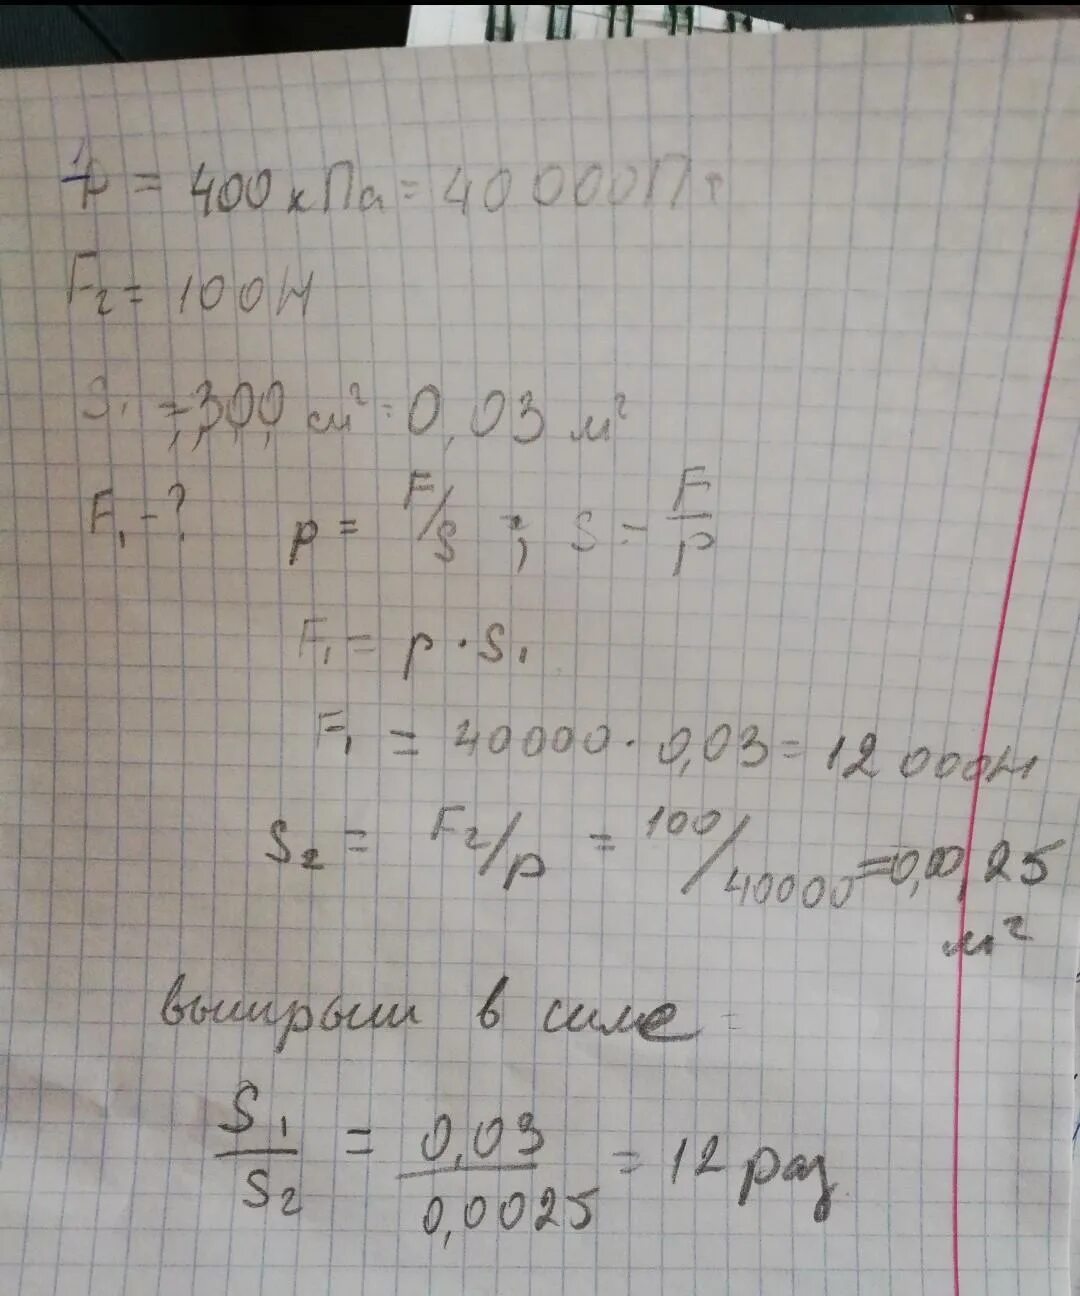 p = 400 кПа = 40 000 Па
F₂ = 100 Н
S₁ = 300 см² = 0,03 м²
F₁ - ? p = F/S ; S = F/p
F₁ = p · S₁
F₁ = 40000 · 0,03 = 12 000 Н
S₂ = F₂/p = 100/40000 = 0,0025
м²
выигрыш в силе =
S₁/S₂ = 0,03/0,0025 = 12 раз